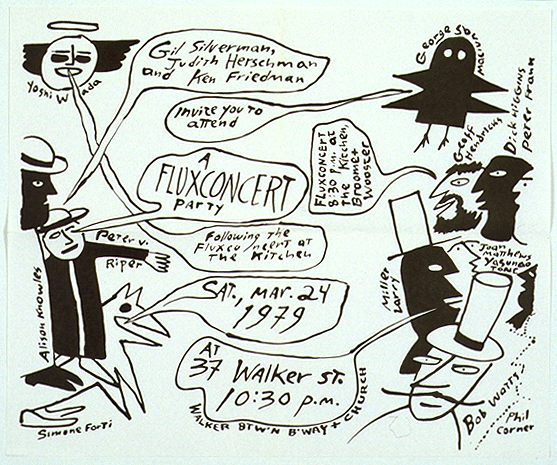 Gil Silverman,
Judith Herschman
and Ken Friedman
Yoshi Wada
George Brecht Maciunas
Invite you to
attend
A
FLUXCONCERT
PARTY
FLUXCONCERT
8:30 p.m. at
The Kitchen,
Broome +
Wooster
Geoff
Hendricks
Dick Higgins
Peter Frank
Following the
Fluxconcert at
The Kitchen
Peter V.
Riper
Alison Knowles
SAT., MAR. 24
1979
Joan
Matthews
Yasunao
TONE
Miller
Larry
AT
37 Walker St.
10:30 p.m.
WALKER BTW'N B'WAY + CHURCH
Simone Forti
Bob Watts
Phil
Corner